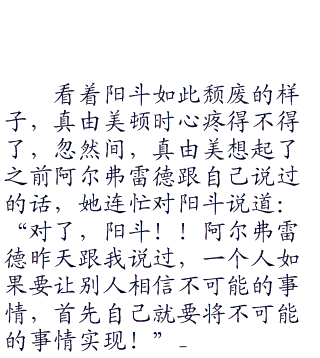 看着阳斗如此颓废的样
子，真由美顿时心疼得不得
了，忽然间，真由美想起了
之前阿尔弗雷德跟自己说过
的话，她连忙对阳斗说道：
“对了，阳斗！！阿尔弗雷
德昨天跟我说过，一个人如
果要让别人相信不可能的事
情，首先自己就要将不可能
的事情实现！”_